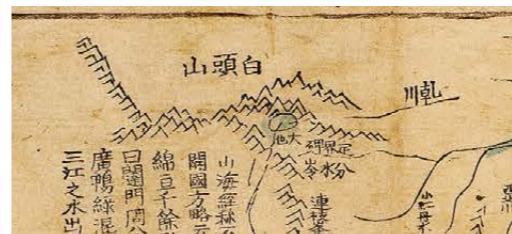 白頭山
乹川
大池
定界碑
分水岺
山海經
開國方略云
綿亘千餘
曰闥門周八
廣鴨綠混
三江之水出